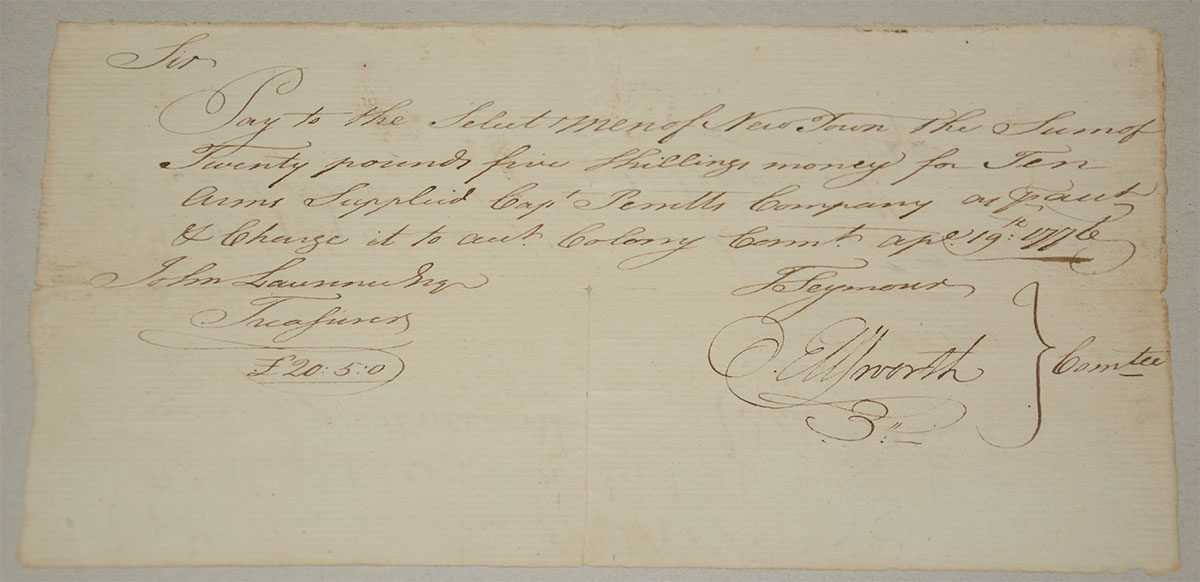 Sir
Pay to the Select Men of New Town the Sum of
Twenty pounds five Shillings money for Ten
Arms Supplied Capt Company as pr acct
& Charge it to acct. Colony Connt ape. 19th: 1776
John Lawrence Esqr
Treasurer
£20:5:0
T Seymour
O. Ellsworth
Comtee